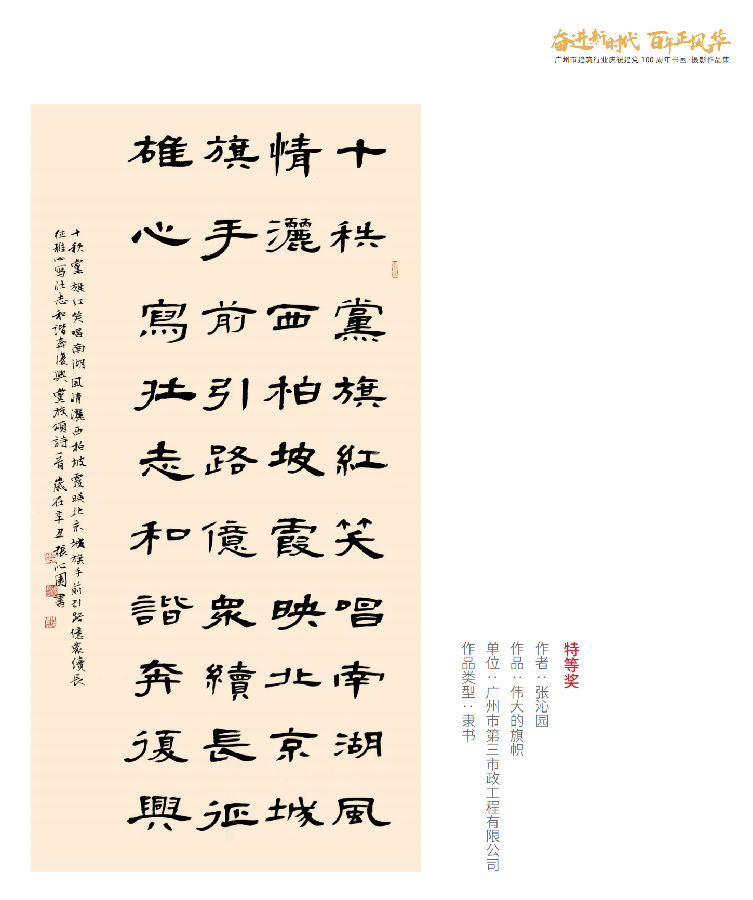 奋进新时代 百年正风华
广州市建筑行业庆祝建党100周年书画·摄影作品集
十秩黨旗紅笑唱南湖風
情灑西柏坡霞映北京城
旗手前引路億衆續長征
雄心寫壯志和諧奔復興
十秩黨旗紅笑唱南湖風情灑西柏坡霞映北京城旗手前引路億衆續長
征雄心寫壯志和諧奔復興黨旗頌詩一首歲在辛丑張沁園書
特等奖
作者：张沁园
作品：伟大的旗帜
单位：广州市第三市政工程有限公司
作品类型：隶书